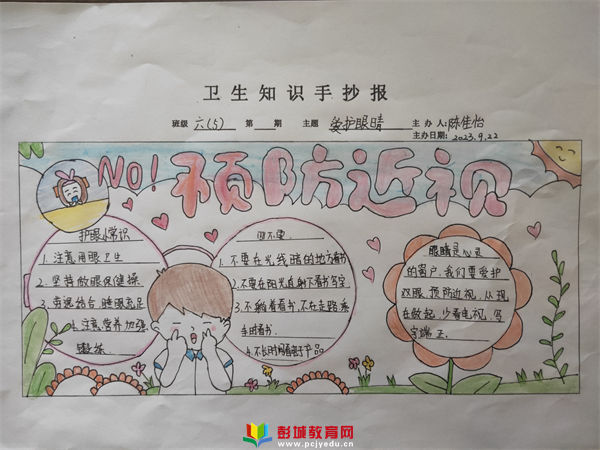 卫生知识手抄报
班级 六(5) 第 期 主题 爱护眼睛 主办人:陈佳怡
主办日期:2023.9.22
NO! 预防近视
护眼小常识
1.注意用眼卫生
2.坚持做眼保健操
3.劳逸结合,睡眠充足
4.注意营养加强
锻炼
四不要
1.不要在光线暗的地方看书
2.不要在阳光直射下看书写字
3.不躺着看书,不在走路乘
车时看书.
4.不长时间看电子产品
眼睛是心灵
的窗户,我们要爱护
双眼,预防近视,从现
在做起,少看电视,写
字端正.
彭城教育网
www.pcjyedu.cn